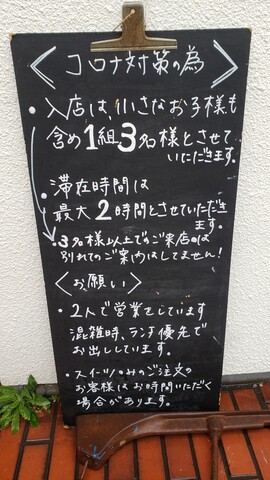 〈コロナ対策の為〉
・入店は、小さなお子様も
含め1組3名様とさせて
いただきます。
・滞在時間は
最大2時間とさせていただき
ます。
・3名様以上でのご来店は
別れてのご案内はしてません!
〈お願い〉
・2人で営業をしています
混雑時、ランチ優先で
お出ししています。
・スイーツのみのご注文の
お客様はお時間いただく
場合があります。